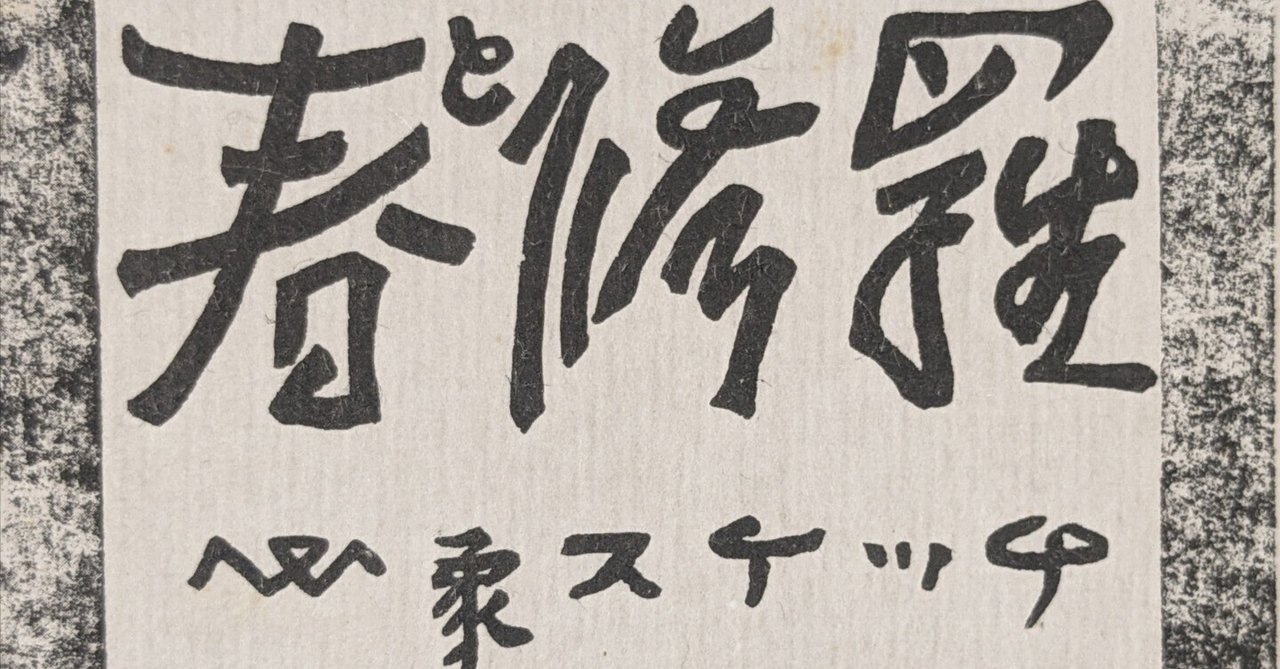 春と修羅
心象スケッチ